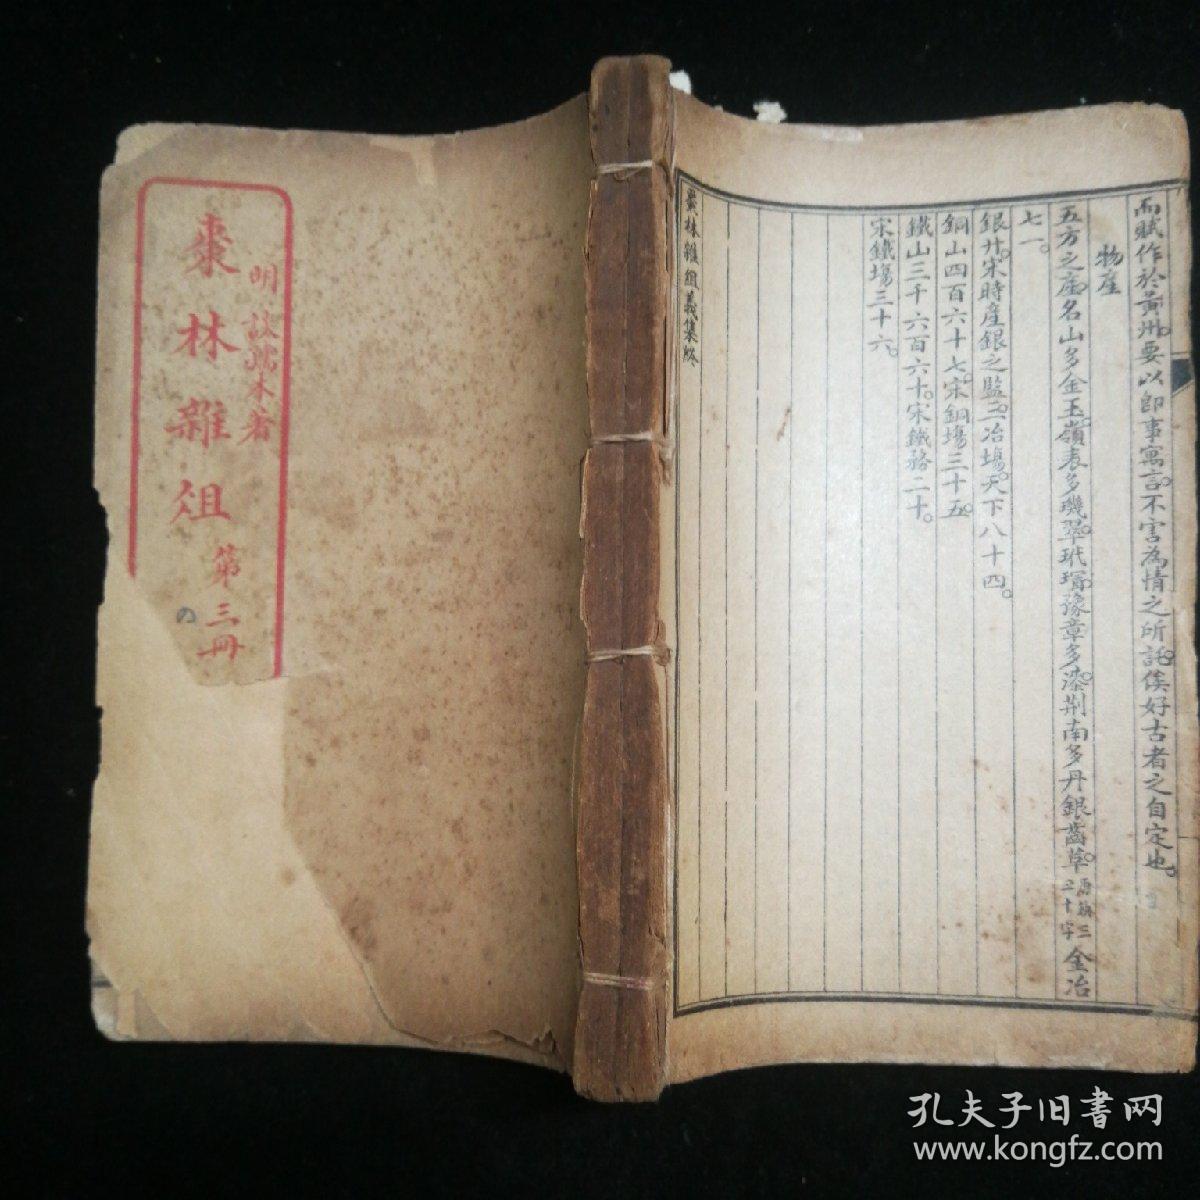 而賦作於黃州要以即事寓言不害為情之所託俟好古者之自定也
物產
五方之產名山多金玉嶺表多璣翠玳瑁豫章多漆荊南多丹銀齒草原缺三二十字金冶
七一
銀廾宋時產銀之監三冶場天下八十四
銅山四百六十七宋銅場三十五
鐵山三千六百六十宋鐵務二十
宋鐵場三十六
棗林雜俎義集終
明 談孺木著
棗林雜俎
第三冊
孔夫子旧書网
www.kongfz.com